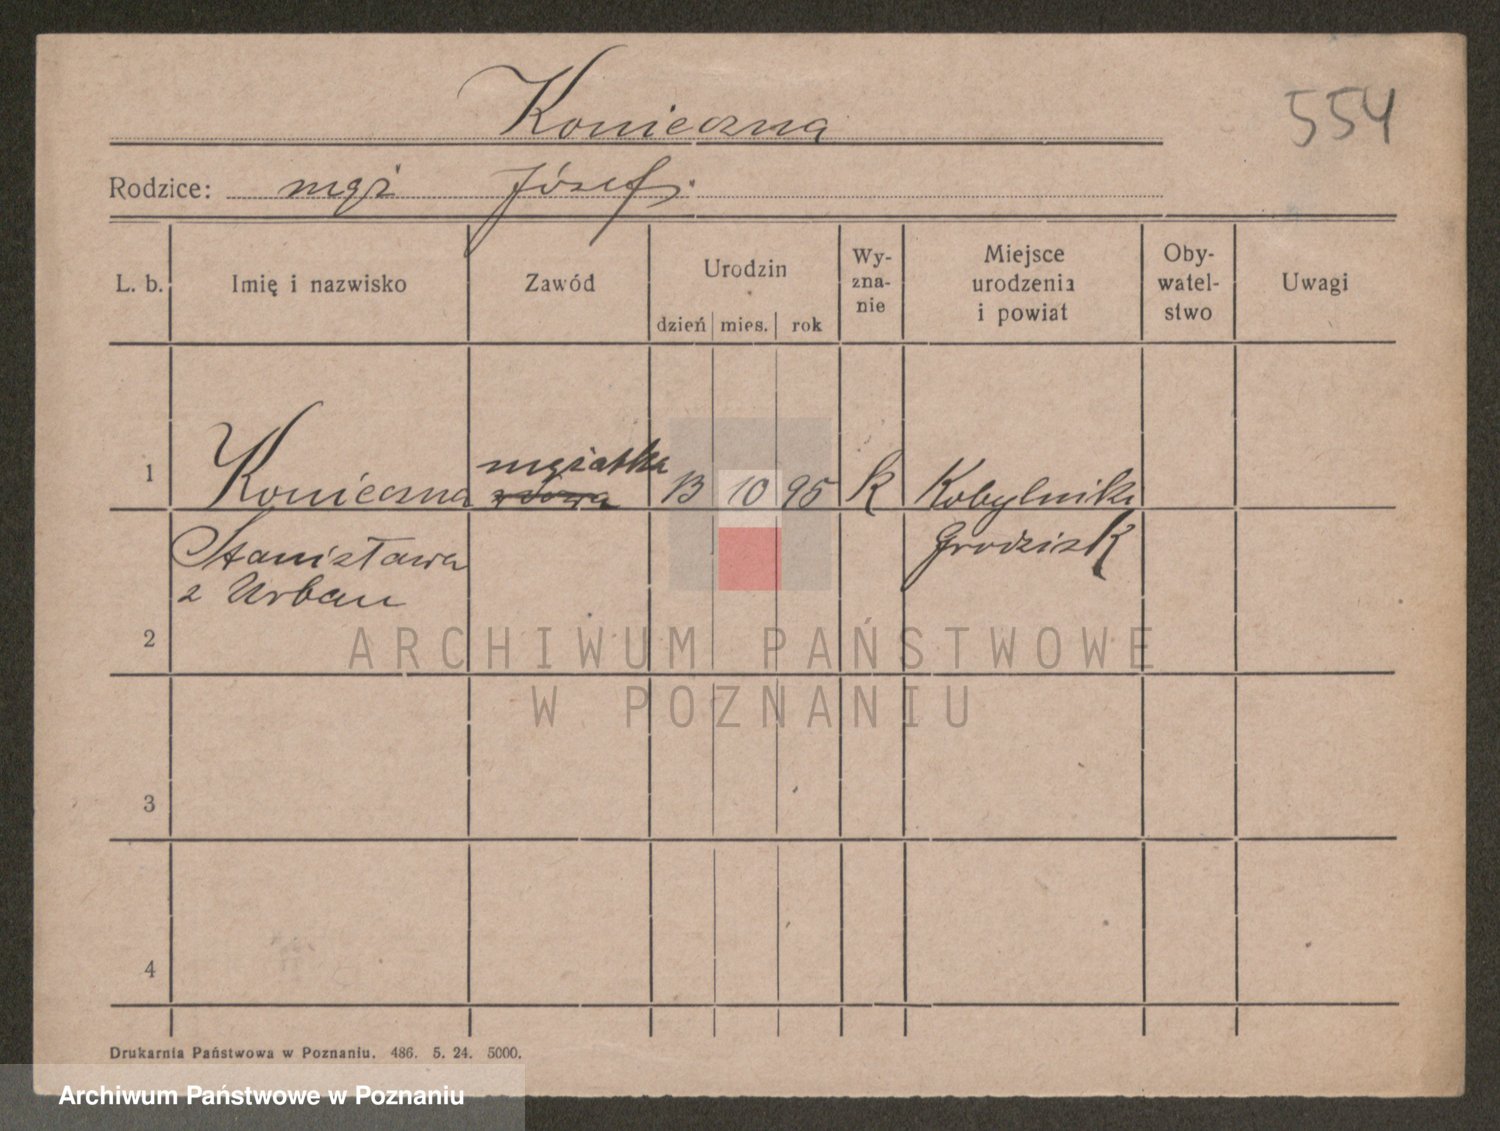 Konieczna
554
Rodzice: mąż Józef.
L. b.
Imię i nazwisko
Zawód
Urodzin
dzień mies. rok
Wy-
zna-
nie
Miejsce
urodzenia
i powiat
Oby-
watel-
stwo
Uwagi
mężatka
1 Konieczna 13 10 95 k Kobylniki
Stanisława Grodzisk
z Urban
2
ARCHIWUM PAŃSTWOWE
W POZNANIU
3
4
Drukarnia Państwowa w Poznaniu. 486. 5. 24. 5000.
Archiwum Państwowe w Poznaniu